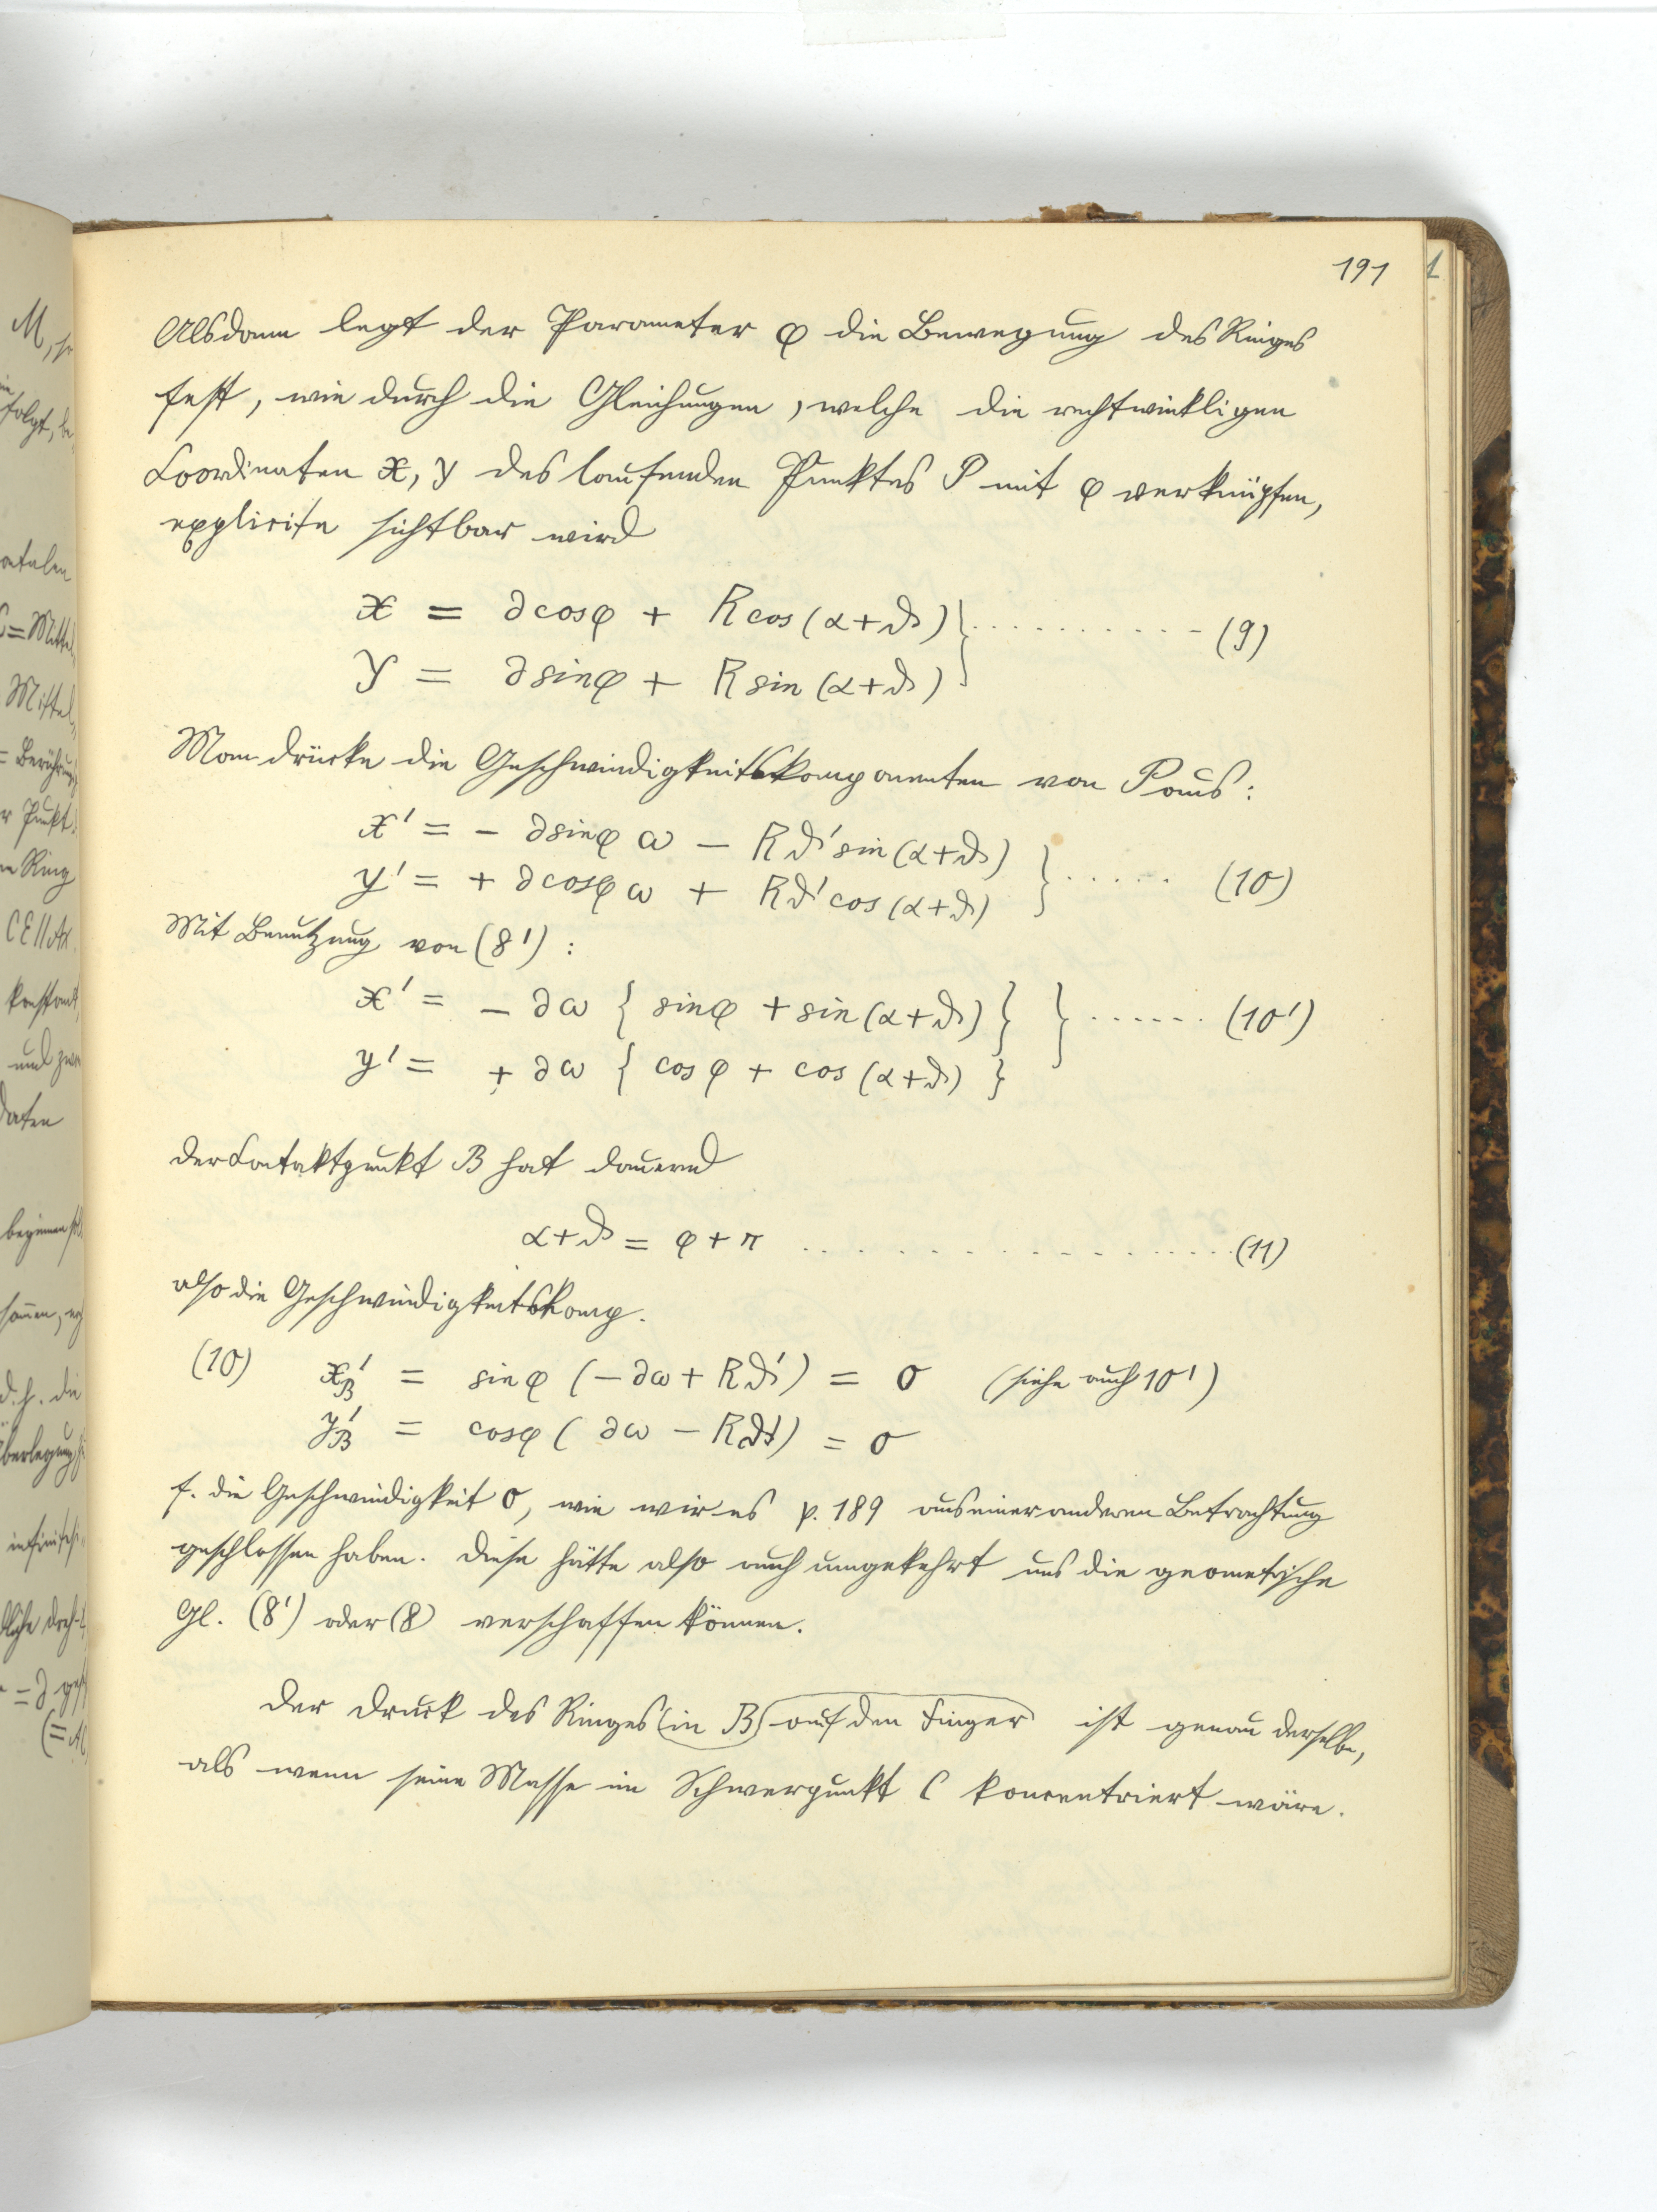 191
Alsdann legt der Parameter φ die Bewegung des Ringes
fest, wie durch die Gleichungen, welche die rechtwinkligen
Coordinaten x, y des laufenden Punktes P mit φ verknüpfen,
explicite sichtbar wird
x = ∂cosφ + Rcos(α+ϑ) } .......... (9)
y = ∂sinφ + Rsin(α+ϑ)
Man drücke die Geschwindigkeitskomponenten von P aus:
x' = - ∂sinφ ω - Rϑ'sin(α+ϑ) } ..... (10)
y' = + ∂cosφ ω + Rϑ'cos(α+ϑ)
Mit Benutzung von (8'):
x' = - ∂ω { sinφ + sin(α+ϑ) } } ...... (10')
y' = + ∂ω { cosφ + cos(α+ϑ) }
der Contaktpunkt B hat dauernd
α+ϑ = φ+π .................. (11)
also die Geschwindigkeitskomp.
(10) x'B = sinφ (-∂ω + Rϑ') = 0 (siehe auch 10')
y'B = cosφ ( ∂ω - Rϑ') = 0
f. die Geschwindigkeit 0, wie wir es p. 189 aus einer anderen Betrachtung
geschlossen haben. Diese hätte also auch umgekehrt uns die geometrische
Gl. (8') oder (8) verschaffen können.
Der Druck des Ringes (in B) auf den Finger ist genau derselbe,
als wenn seine Masse im Schwerpunkt C koncentriert wäre.